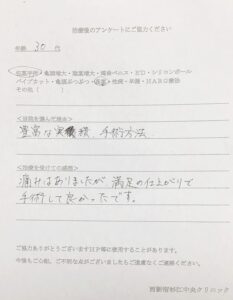 治療後のアンケートにご協力ください
年齢 30 代
包茎手術・亀頭増大・陰茎増大・埋没ペニス・ED・シリコンボール
パイプカット・亀頭ぶつぶつ・包茎・性病・早漏・HARG療法
その他（ ）
＜当院を選んだ理由＞
豊富な実績、手術方法
＜治療を受けての感想＞
痛みはありましたが、満足の仕上がりで
手術して良かったです。
ご協力ありがとうございます HP等に使用することがあります。
今後もご心配、ご不明な点がございましたらご遠慮なくご連絡ください。
西新宿杉江中央クリニック